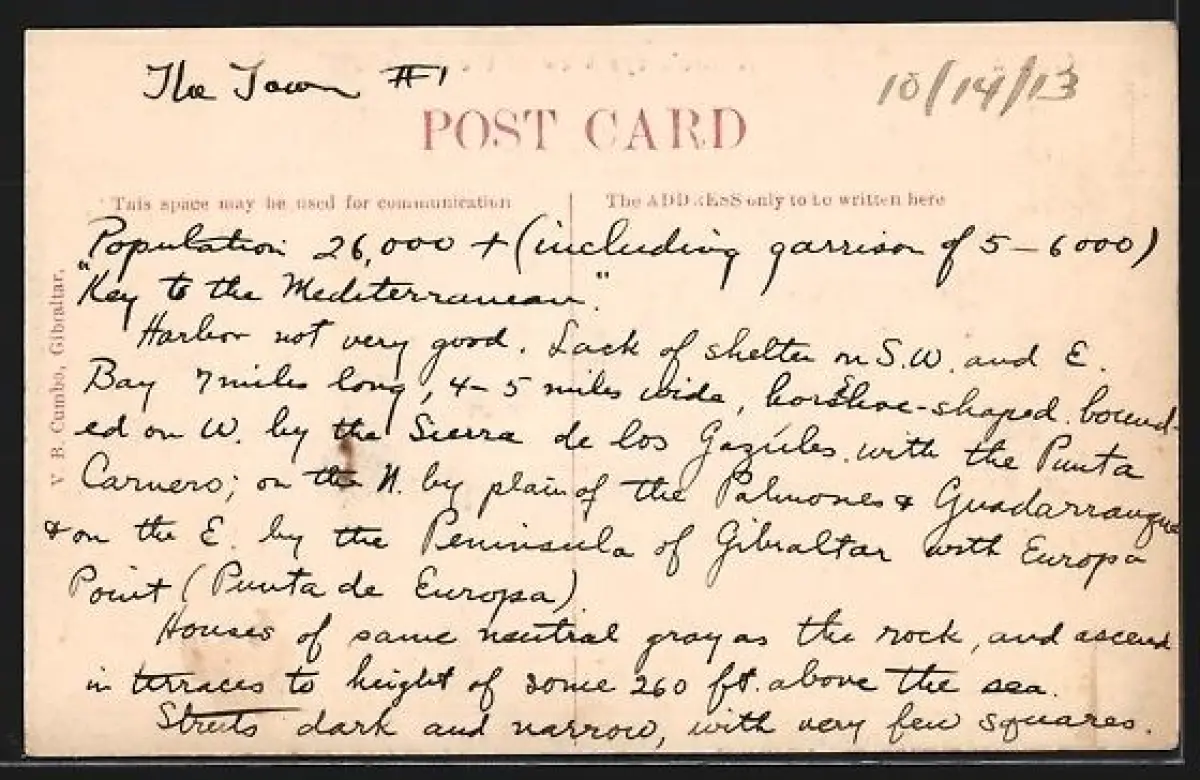 The Town #1
10/14/13
POST CARD
This space may be used for communication
The ADDRESS only to be written here
Population 26,000 + (including garrison of 5–6000)
"Key to the Mediterranean."
Harbor not very good. Lack of shelter on S.W. and E.
Bay 7 miles long, 4–5 miles wide, horseshoe-shaped. bound-
ed on W. by the Sierra de los Gazules with the Punta
Carnero; on the N. by plain of the Palmones & Guadarranque
& on the E. by the Peninsula of Gibraltar with Europa
Point (Punta de Europa)
Houses of same neutral gray as the rock, and ascend
in terraces to height of some 260 ft. above the sea.
Streets dark and narrow, with very few squares.
V. B. Cumbo, Gibraltar,